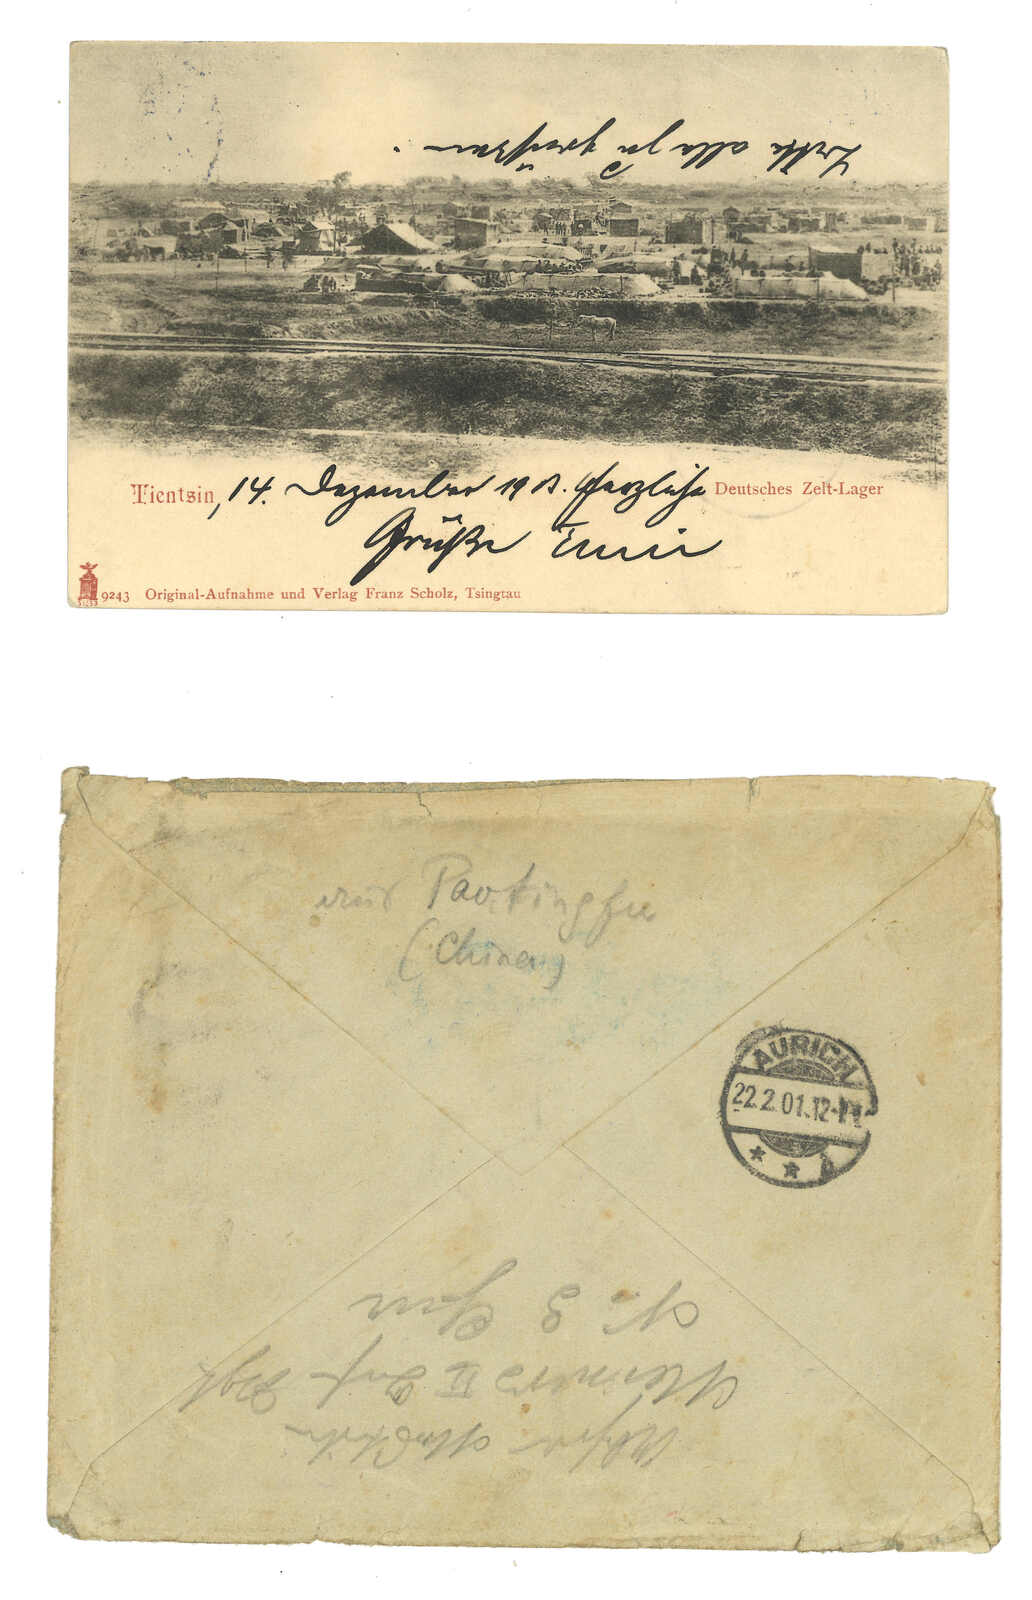 Bitte alle zu grüßen.
Tientsin, 14. Dezember 19 Herzliche Deutsches Zelt-Lager
Grüße
9243 Original-Aufnahme und Verlag Franz Scholz, Tsingtau
aus Paotingfu
(China)
AURICH
22.2.01.12-
* *
N: 3 China
II Inf Rgt